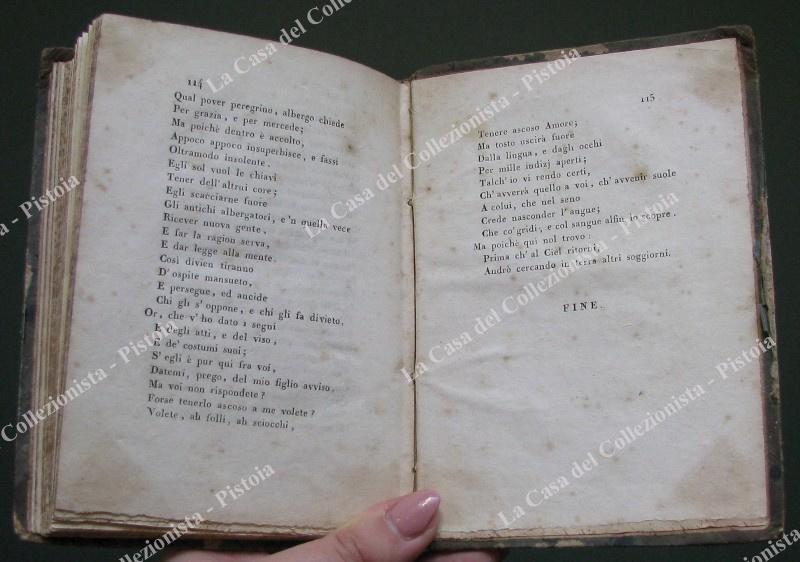 114
Qual pover peregrino, albergo chiede
Per grazia, e per mercede;
Ma poichè dentro è accolto,
Appoco appoco insuperbisce, e fassi
Oltramodo insolente.
Egli sol vuol le chiavi
Tener dell'altrui core;
Egli scacciarne fuore
Gli antichi albergatori, e 'n quella vece
Ricever nuova gente.
E far la ragion serva,
E dar legge alla mente.
Così divien tiranno
D'ospite mansueto,
E persegue, ed ancide
Chi gli s'oppone, e chi gli fa divieto.
Or, che v'ho dato i segni
E degli atti, e del viso,
E de' costumi suoi;
S'egli è pur qui fra voi,
Datemi, prego, del mio figlio avviso.
Ma voi non rispondete?
Forse tenerlo ascoso a me volete?
Volete, ah folli, ah sciocchi,
115
Tenere ascoso Amore;
Ma tosto uscirà fuore
Dalla lingua, e dagli occhi
Per mille indizj aperti;
Talch'io vi rendo certi,
Ch'avverrà quello a voi, ch'avvenir suole
A colui, che nel seno
Crede nasconder l'angue;
Che co' gridi, e col sangue alfin lo scopre.
Ma poichè qui nol trovo:
Prima ch'al Ciel ritorni,
Andrò cercando in terra altri soggiorni.
FINE.
La Casa del Collezionista - Pistoia
La Casa del Collezionista - Pistoia
La Casa del Collezionista - Pistoia
La Casa del Collezionista - Pistoia
La Casa del Collezionista - Pistoia